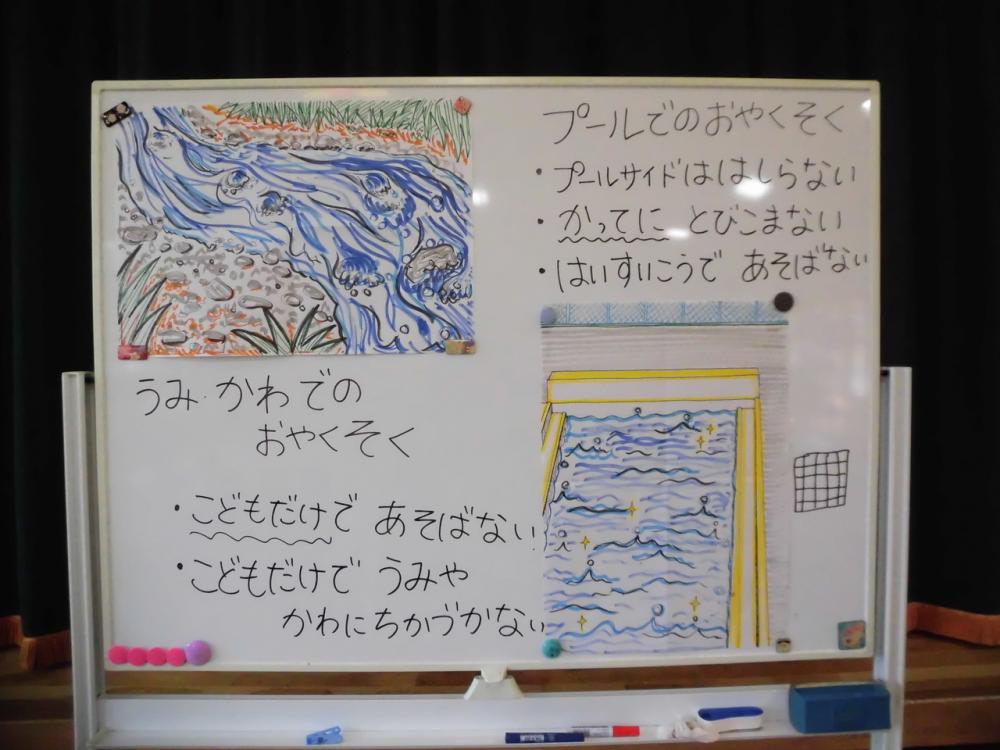 プールでのおやくそく
・プールサイドははしらない
・かってに とびこまない
・はいすいこうで あそばない
うみ・かわでの
おやくそく
・こどもだけで あそばない
・こどもだけで うみや
かわにちかづかない